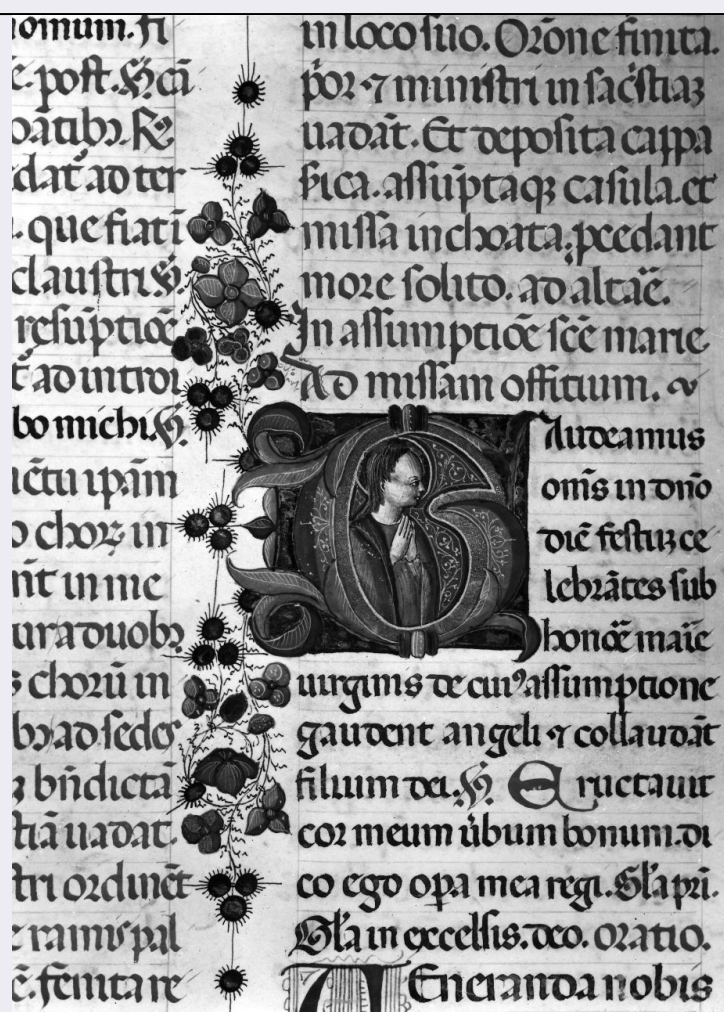 omum. fi
e. post. ℟ cā
bātibꝫ. ℟
dat̄ ad ter
. que fiat ī
claustri ℟.
resūptiōe
t̄ ad introi
bo michi. ℟.
ūctu ipām
o choꝝ in
nt in me
ura duobꝫ
s chorū in
bꝫ ad sedes
bn̄dictā
tiā uadat.
tri ordinēt
e ramis pal
ē. fenita re
in loco suo. Orōne finita.
p̄or ⁊ ministri in sac̄stiaꝫ
uadāt. Et deposita cappa
s̄ica. assūptaqꝫ casula. et
missa inchoata. ꝓcedant
more solito. ad altāē.
In assumptiōe sc̄e marie
Ad missam offitium.
GAudeamus
oms̄ in dn̄o
diē festuꝫ ce
lebrātes sub
honōē māīē
uirginis de cuiꝰ assumptione
gaudent angeli ⁊ collaudāt
filium dei. ℣. Eructauit
cor meum ūbum bonum. di
co ego opa mea regi. Gl̄a pri.
Gl̄a in excelsis. deo. oratio.
UEneranda nobis